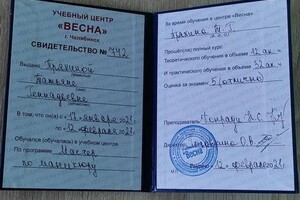 УЧЕБНЫЙ ЦЕНТР
«ВЕСНА»
г. Челябинск
СВИДЕТЕЛЬСТВО № 742
Выдано
Татьяне
Геннадьевне
В том, что он(а) с «17» января 2021 г.
по «12» февраля 2021 г.
Обучался (обучалась) в учебном центре
По программе Мастер
по маникюру
За время обучения в центре «Весна»
Т. Г.
Прошёл(ла) полный курс:
Теоретического обучения в объеме 12 ак. ч
И практического обучения в объеме 32 ак. ч
Оценка за экзамен 5 (отлично)
Преподаватель
Директор О.В.
Весна
М.П.
«12» февраля 2021 г.